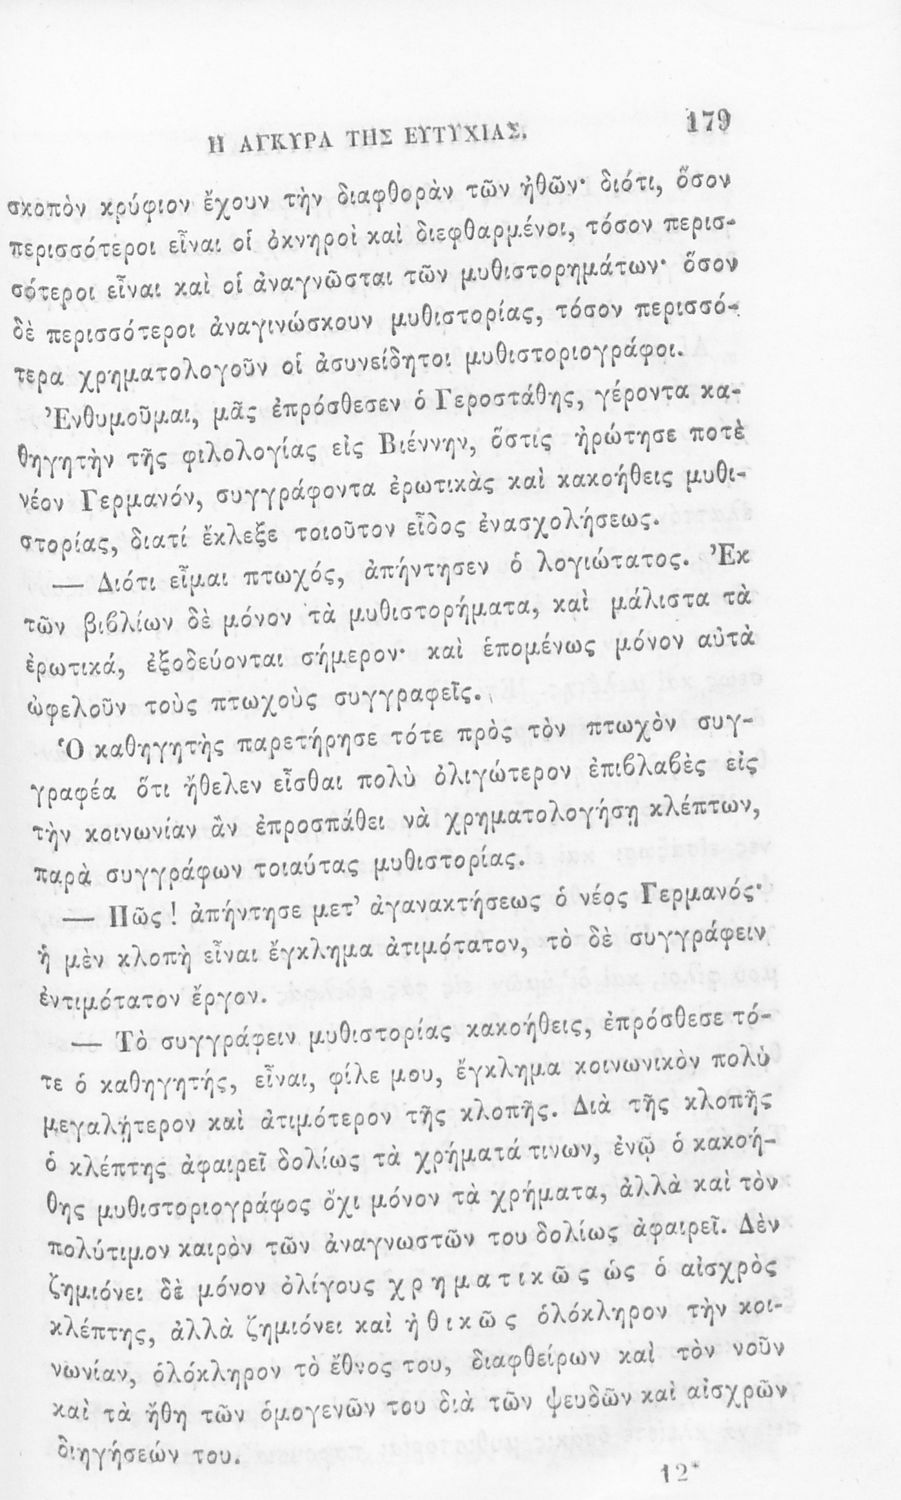 Η ΑΓΚΥΡΑ ΤΗΣ ΕΥΤΥΧΙΑΣ. 179
σκοπὸν κρύφιον ἔχουν τὴν διαφθορὰν τῶν ἠθῶν· διότι, ὅσον
περισσότεροι εἶναι οἱ ὀκνηροὶ καὶ διεφθαρμένοι, τόσον περισ-
σότεροι εἶναι καὶ οἱ ἀναγνῶσται τῶν μυθιστορημάτων· ὅσον
δὲ περισσότεροι ἀναγινώσκουν μυθιστορίας, τόσον περισσό-
τερα χρηματολογοῦν οἱ ἀσυνείδητοι μυθιστοριογράφοι.
Ἐνθυμοῦμαι, μᾶς ἐπρόσθεσεν ὁ Γεροστάθης, γέροντα κα-
θηγητὴν τῆς φιλολογίας εἰς Βιέννην, ὅστις ἠρώτησε ποτὲ
νέον Γερμανόν, συγγράφοντα ἐρωτικὰς καὶ κακοήθεις μυθι-
στορίας, διατί ἔκλεξε τοιοῦτον εἶδος ἐνασχολήσεως.
— Διότι εἶμαι πτωχός, ἀπήντησεν ὁ λογιώτατος. Ἐκ
τῶν βιβλίων δὲ μόνον τὰ μυθιστορήματα, καὶ μάλιστα τὰ
ἐρωτικά, ἐξοδεύονται σήμερον· καὶ ἑπομένως μόνον αὐτὰ
ὠφελοῦν τοὺς πτωχοὺς συγγραφεῖς.
Ὁ καθηγητὴς παρετήρησε τότε πρὸς τὸν πτωχὸν συγ-
γραφέα ὅτι ἤθελεν εἶσθαι πολὺ ὀλιγώτερον ἐπιβλαβὲς εἰς
τὴν κοινωνίαν ἂν ἐπροσπάθει νὰ χρηματολογήσῃ κλέπτων,
παρὰ συγγράφων τοιαύτας μυθιστορίας.
— Πῶς! ἀπήντησε μετ’ ἀγανακτήσεως ὁ νέος Γερμανός·
ἡ μὲν κλοπὴ εἶναι ἔγκλημα ἀτιμότατον, τὸ δὲ συγγράφειν
ἐντιμότατον ἔργον.
— Τὸ συγγράφειν μυθιστορίας κακοήθεις, ἐπρόσθεσε τό-
τε ὁ καθηγητής, εἶναι, φίλε μου, ἔγκλημα κοινωνικὸν πολὺ
μεγαλῄτερον καὶ ἀτιμότερον τῆς κλοπῆς. Διὰ τῆς κλοπῆς
ὁ κλέπτης ἀφαιρεῖ δολίως τὰ χρήματά τινων, ἐνῷ ὁ κακοή-
θης μυθιστοριογράφος ὄχι μόνον τὰ χρήματα, ἀλλὰ καὶ τὸν
πολύτιμον καιρὸν τῶν ἀναγνωστῶν του δολίως ἀφαιρεῖ. Δὲν
ζημιόνει δὲ μόνον ὀλίγους χρηματικῶς ὡς ὁ αἰσχρὸς
κλέπτης, ἀλλὰ ζημιόνει καὶ ἠθικῶς ὁλόκληρον τὴν κοι-
νωνίαν, ὁλόκληρον τὸ ἔθνος του, διαφθείρων καὶ τὸν νοῦν
καὶ τὰ ἤθη τῶν ὁμογενῶν του διὰ τῶν ψευδῶν καὶ αἰσχρῶν
διηγήσεών του.
12*